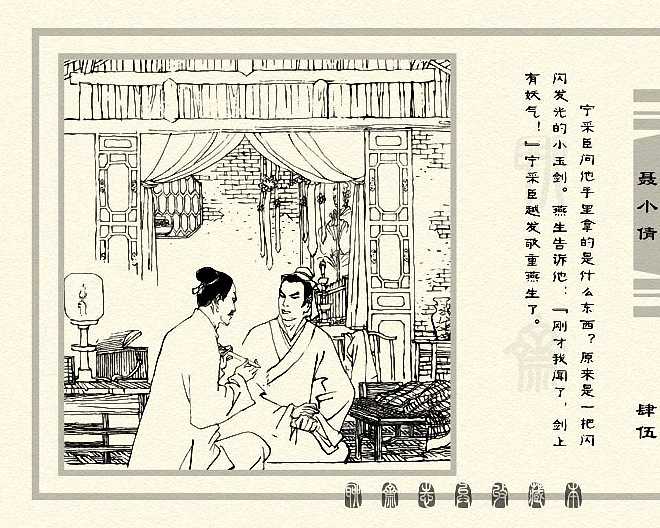 聂小倩
肆伍
宁采臣问他手里拿的是什么东西？原来是一把闪
闪发光的小玉剑。燕生告诉他：「刚才我闻了，剑上
有妖气！』宁采臣越发敬重燕生了。